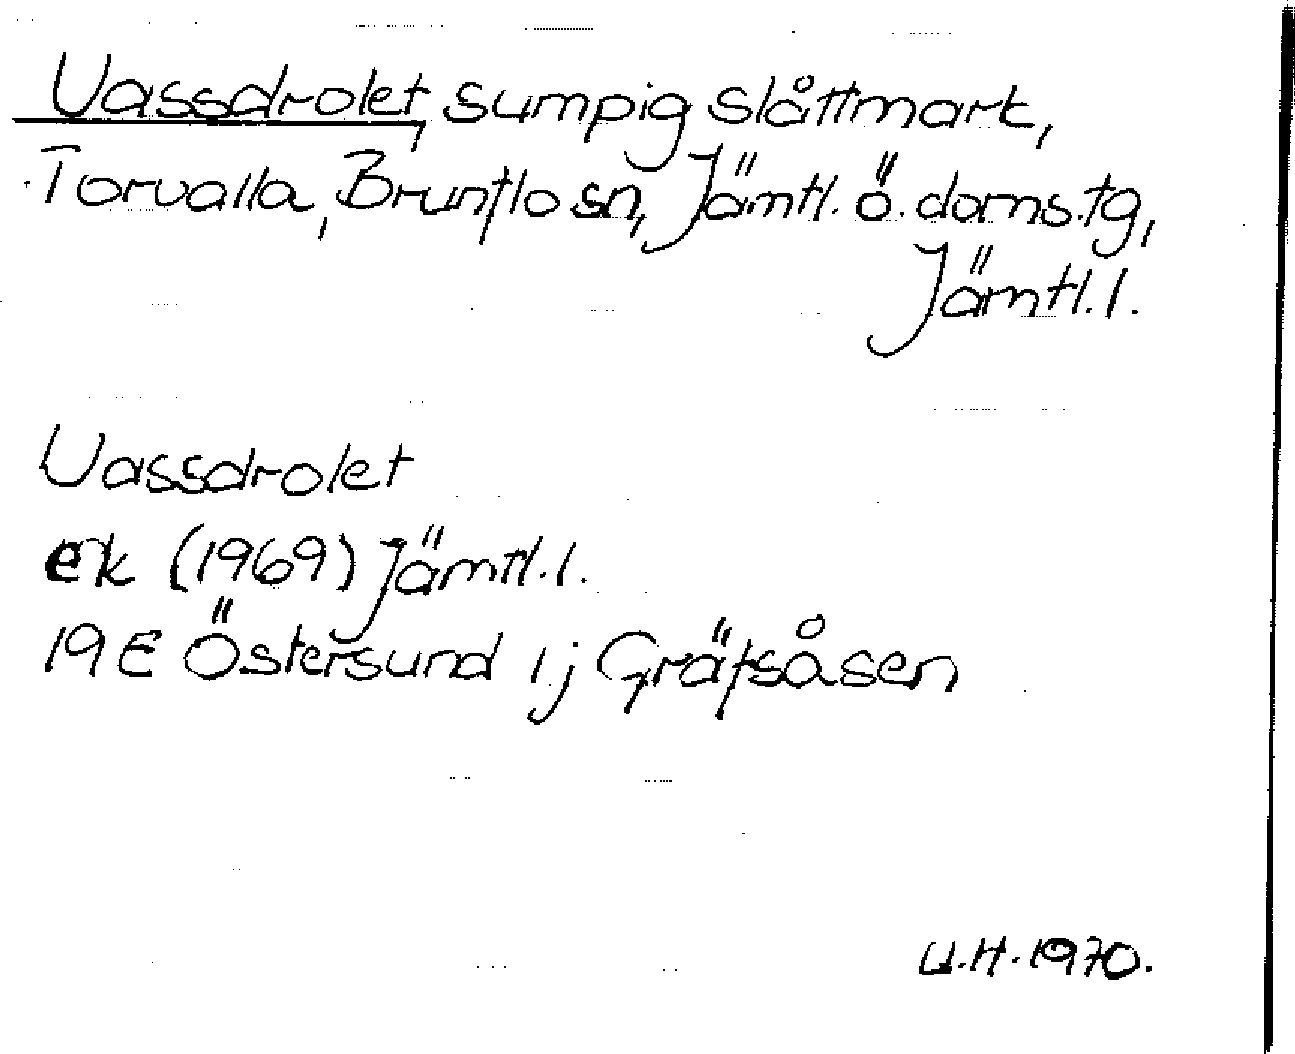 Vassdrolet, sumpig slåttmark,
Torvalla, Brunflo sn, Jämtl. ö. doms.tg,
Jämtl. l.
Vassdrolet
ek (1969) Jämtl. l.
19 E Östersund 1 j Gräfsåsen
U.H. 1970.